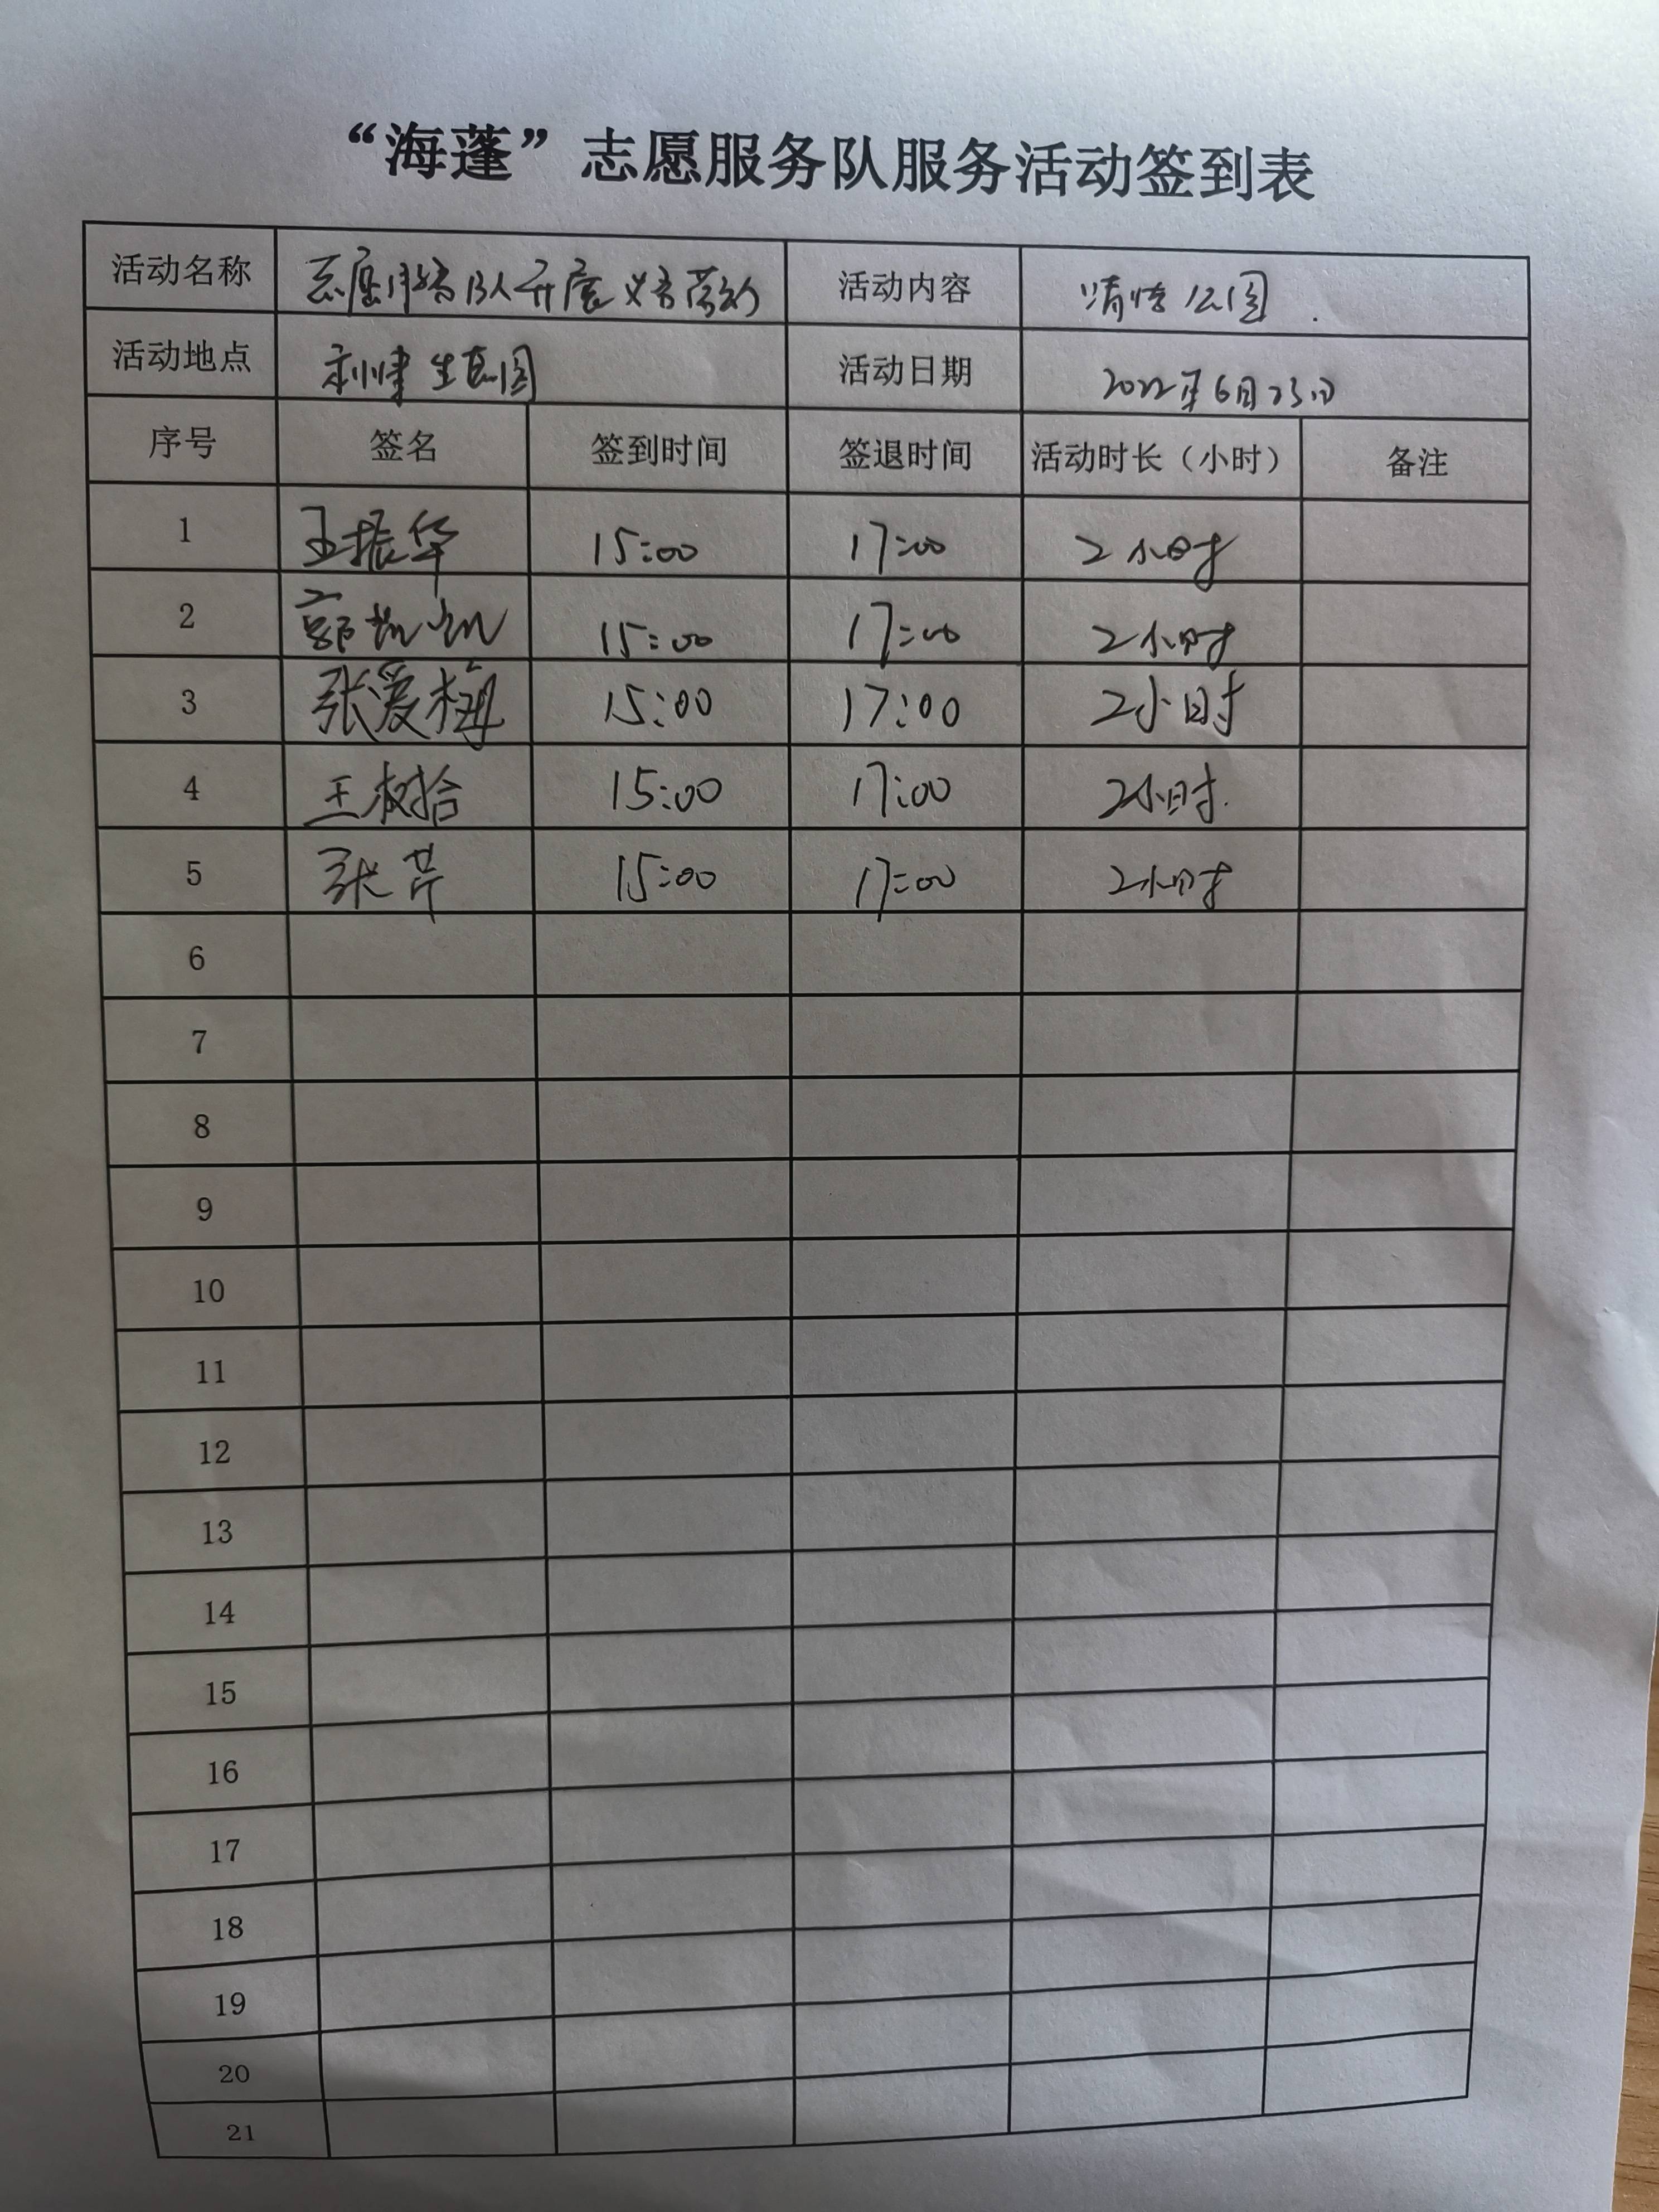 “海蓬”志愿服务队服务活动签到表
活动名称 志愿服务队开展义务劳动 活动内容 清洁公园
活动地点 利津生态园 活动日期 2022年6月23日
序号 签名 签到时间 签退时间 活动时长（小时） 备注
1 王振华 15:00 17:00 2小时
2 郭 15:00 17:00 2小时
3 张爱梅 15:00 17:00 2小时
4 王树拾 15:00 17:00 2小时
5 张芹 15:00 17:00 2小时
6
7
8
9
10
11
12
13
14
15
16
17
18
19
20
21